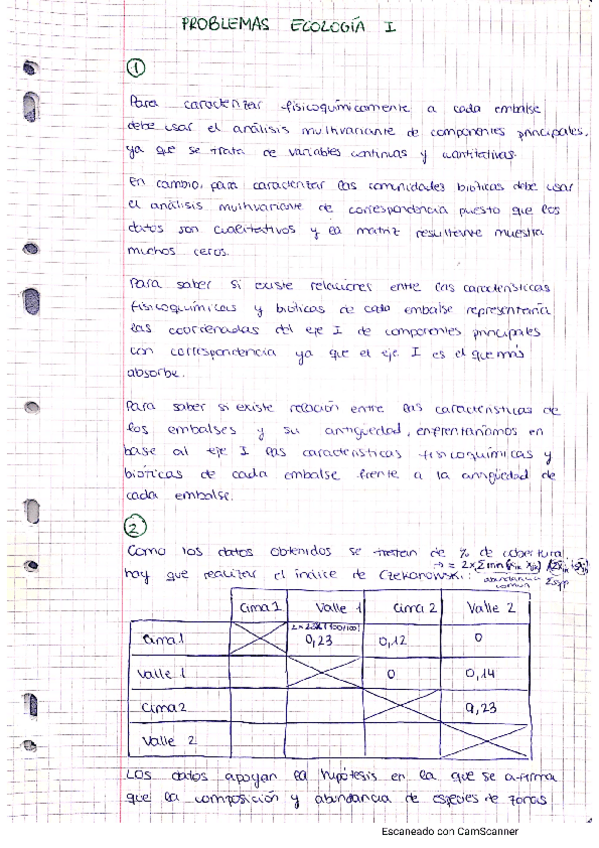 PROBLEMAS ECOLOGÍA I
1
Para caracterizar fisicoquímicamente a cada embalse
debe usar el análisis multivariante de componentes principales,
ya que se trata de variables continuas y cuantitativas.
En cambio, para caracterizar las comunidades bióticas debe usar
el análisis multivariante de correspondencia puesto que los
datos son cualitativos y la matriz resultante muestra
muchos ceros.
Para saber si existe relaciones entre las características
fisicoquímicas y bióticas de cada embalse representaría
las coordenadas del eje I de componentes principales
con correspondencia ya que el eje I es el que más
absorbe.
Para saber si existe relación entre las características de
los embalses y su antigüedad, enfrentaríamos en
base al eje I las características fisicoquímicas y
bióticas de cada embalse frente a la antigüedad de
cada embalse.
2
Como los datos obtenidos se tratan de % de cobertura
hay que realizar el índice de Czekanowski:
abundancia común
Cima 1 Valle 1 Cima 2 Valle 2
Cima 1 0,23 0,12 0
Valle 1 0 0,14
Cima 2 0,23
Valle 2
Los datos apoyan la hipótesis en la que se afirma
que la composición y abundancia de especies de zonas
Escaneado con CamScanner